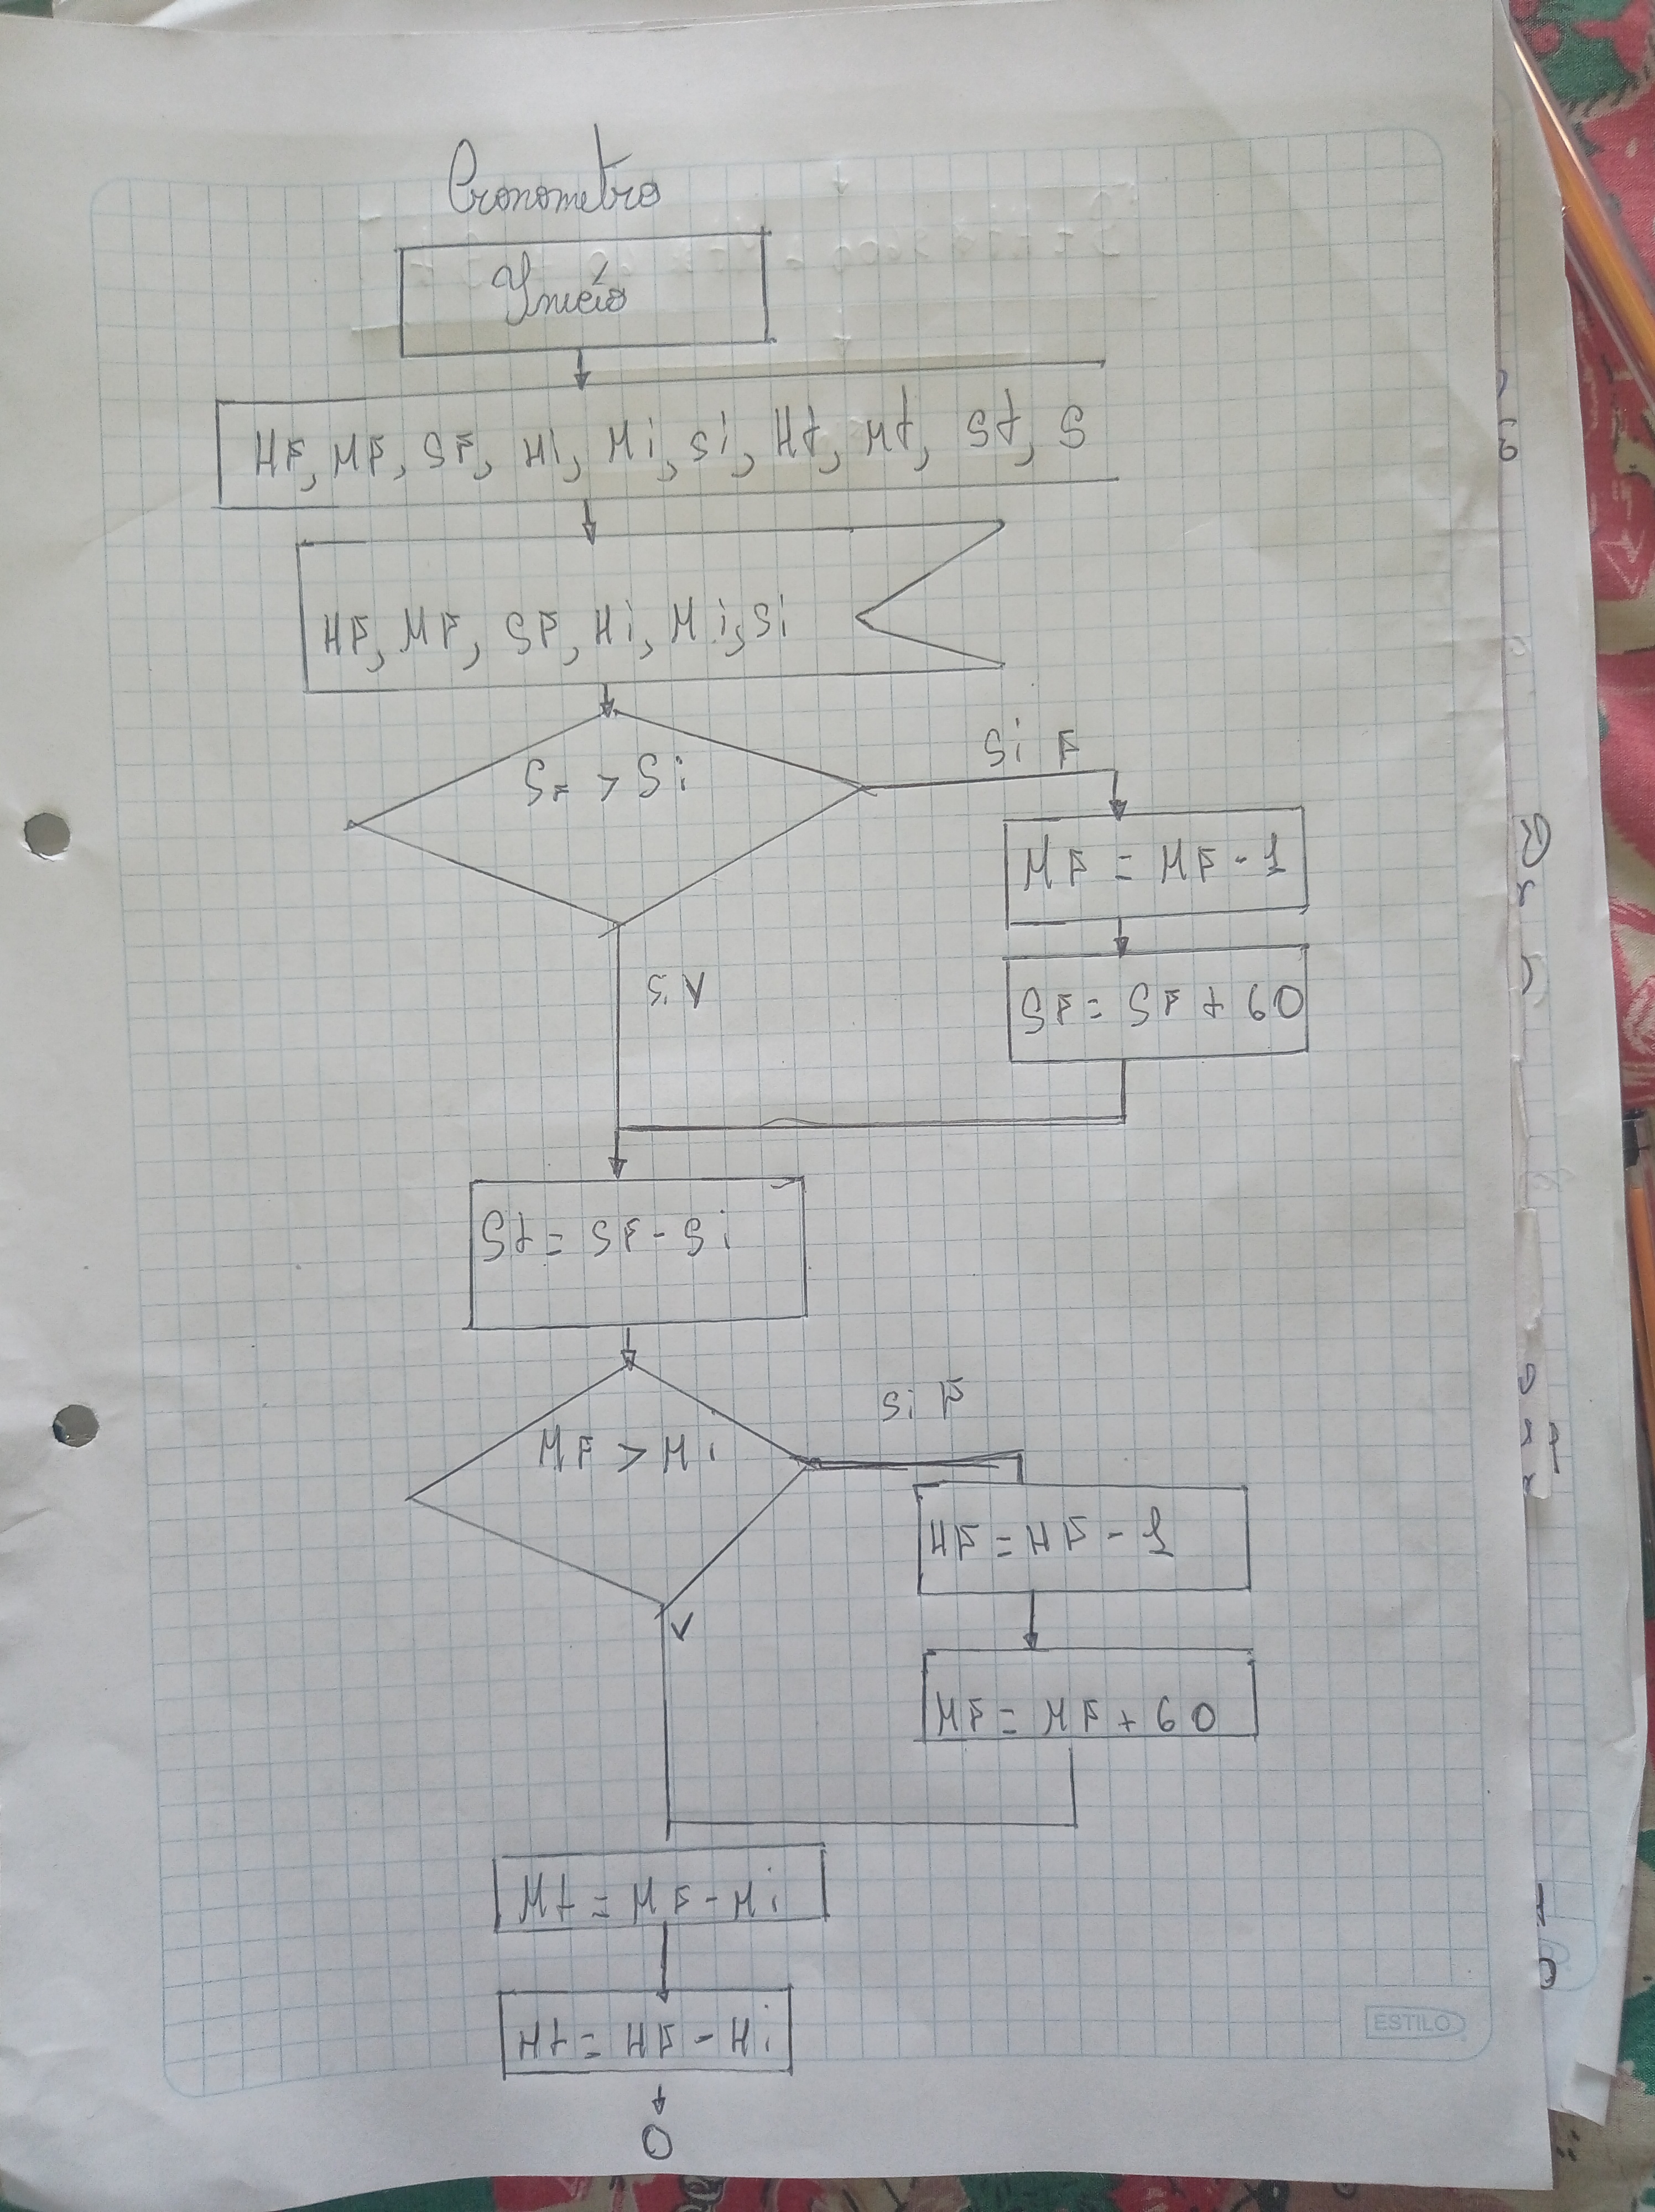 Cronometro
Inicio
HF, MF, SF, Hi, Mi, Si, Ht, Mt, St, S
HF, MF, SF, Hi, Mi, Si
SF > Si
Si F
MF = MF - 1
Si V
SF = SF + 60
St = SF - Si
Si F
MF > Mi
HF = HF - 1
V
MF = MF + 60
Mt = MF - Mi
Ht = HF - Hi
O
ESTILO